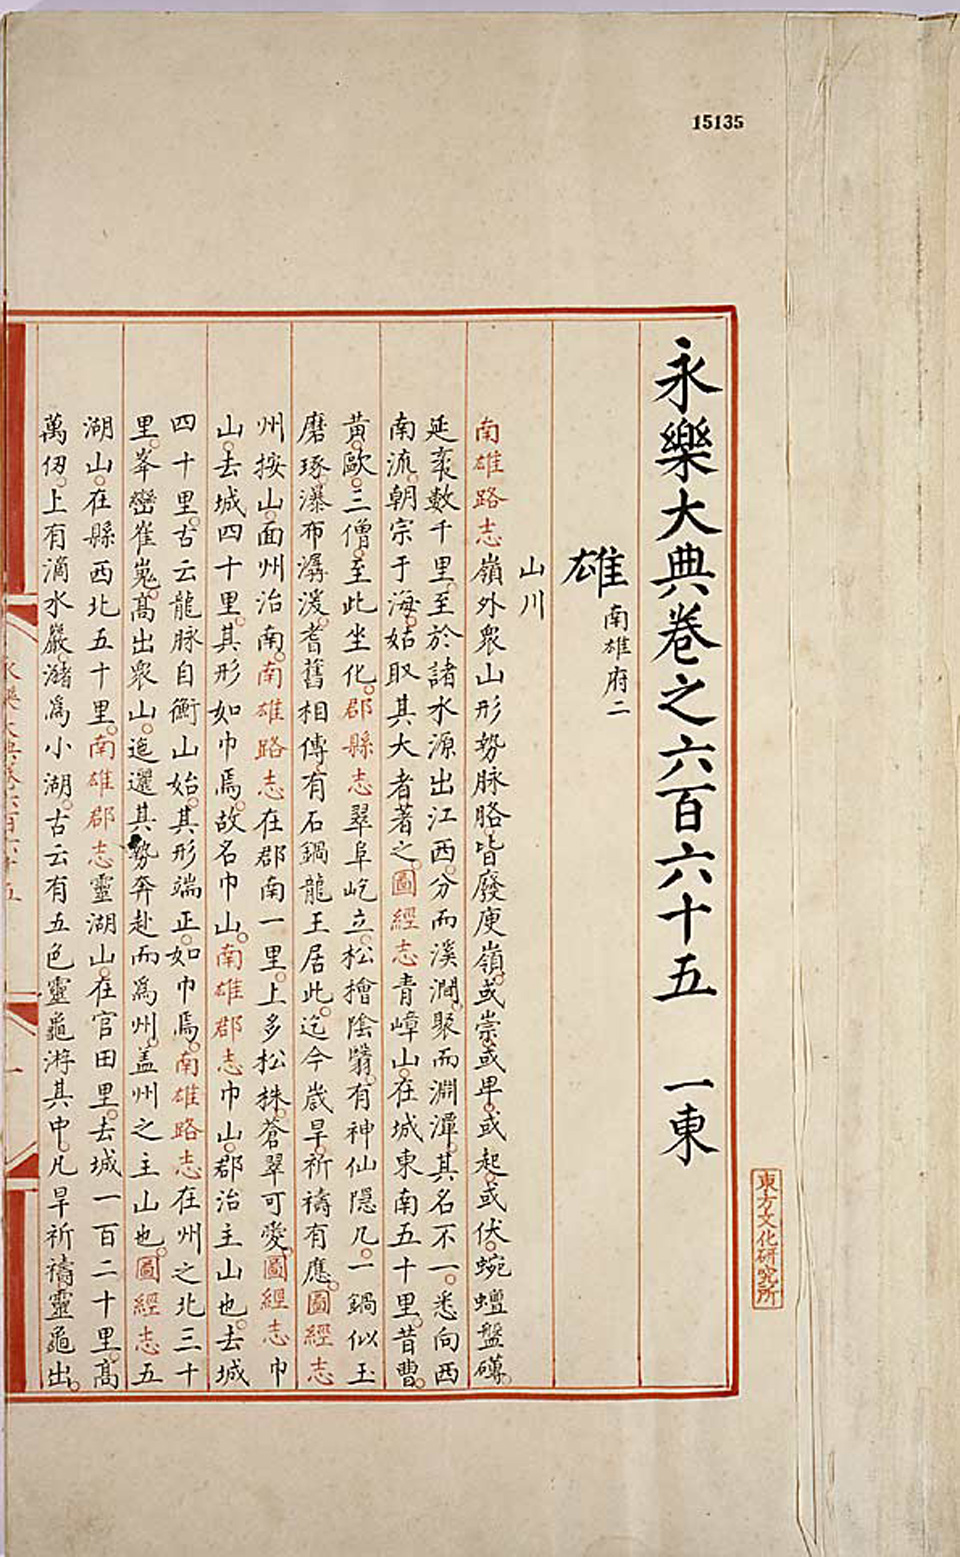 15135
永樂大典卷之六百六十五 一東
東方文化研究所
雄 南雄府二
山川
南雄路志嶺外衆山形勢脉胳皆廢庾嶺或崇或卑或起或伏蜿蟺盤礴
延袤數千里至於諸水源出江西分而溪澗聚而淵潭其名不一悉向西
南流朝宗于海姑取其大者著之圖經志青嶂山在城東南五十里昔曹
黃歐三僧至此坐化郡縣志翠阜屹立松檜陰翳有神仙隱几一鍋似玉
磨琢瀑布潺湲耆舊相傳有石鍋龍王居此迄今歲旱祈禱有應圖經志
州按山面州治南南雄路志在郡南一里上多松株蒼翠可愛圖經志巾
山去城四十里其形如巾焉故名巾山南雄郡志巾山郡治主山也去城
四十里古云龍脉自衡山始其形端正如巾焉南雄路志在州之北三十
里峯巒崔嵬高出衆山迤邐其勢奔赴而爲州盖州之主山也圖經志五
湖山在縣西北五十里南雄郡志靈湖山在官田里去城一百二十里高
萬仞上有滴水巖瀦爲小湖古云有五色靈龜游其中凡旱祈禱靈龜出
永樂大典卷六百六十五
一